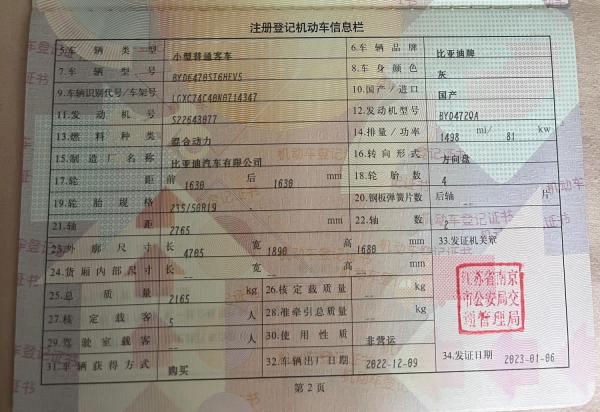 注册登记机动车信息栏
5.车辆类型 小型普通客车 6.车辆品牌 比亚迪牌
7.车辆型号 BYD6470SI6HEV5 8.车身颜色 灰
9.车辆识别代号/车架号 LGXC74C40N0714347 10.国产/进口 国产
11.发动机号 S22643077 12.发动机型号 BYD472QA
13.燃料种类 混合动力 14.排量/功率 1498 ml/ 81 kw
15.制造厂名称 比亚迪汽车有限公司 16.转向形式 方向盘
17.轮距 前 1630 后 1630 mm 18.轮胎数 4
19.轮胎规格 235/50R19 20.钢板弹簧片数 后轴 -- 片
21.轴距 2765 mm 22.轴数 2
23.外廓尺寸 长 4705 宽 1890 高 1680 mm 33.发证机关章
24.货厢内部尺寸 长 -- 宽 -- 高 -- mm
25.总质量 2165 kg 26.核定载质量 -- kg
27.核定载客 5 人 28.准牵引总质量 -- kg
29.驾驶室载客 -- 人 30.使用性质 非营运
31.车辆获得方式 购买 32.车辆出厂日期 2022-12-09 34.发证日期 2023-01-06
江苏省南京
市公安局交
通管理局
第2页